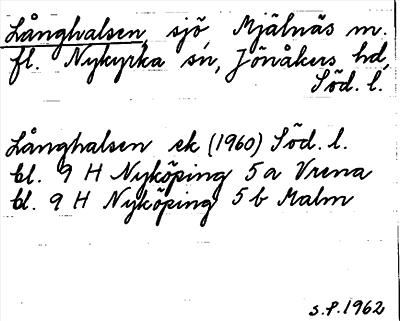 Långhalsen, sjö, Mjälnäs m.
fl. Nykyrka sn, Jönåkers hd,
Söd. l.
Långhalsen ek (1960) Söd. l.
bl. 9 H Nyköping 5a Vrena
bl. 9 H Nyköping 5 b Malm
S.P. 1962